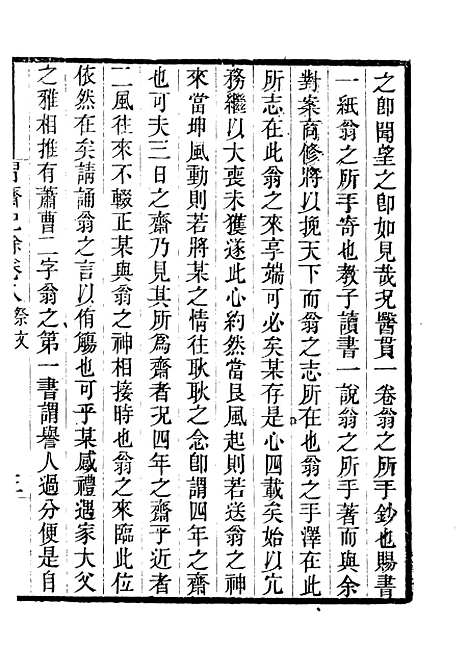 之卽聞望之卽如見哉况醫貫一卷翁之所手鈔也賜書
一紙翁之所手寄也教子讀書一說翁之所手著而與余
對案商修將以挽天下而翁之志所在也翁之手澤在此
所志在此翁之來享端可必矣某存是心四載矣始以冗
務繼以大喪未獲遂此心約然當艮風起則若送翁之神
來當坤風動則若將某之情往耿耿之念卽謂四年之齋
也可夫三日之齋乃見其所爲齋者况四年之齋乎近者
二風往來不輟正某與翁之神相接時也翁之來臨此位
依然在矣請誦翁之言以侑觴也可乎某感禮遇家大父
之雅相推有蕭曹二字翁之第一書謂譽人過分便是自
習齋記餘卷八祭文
三